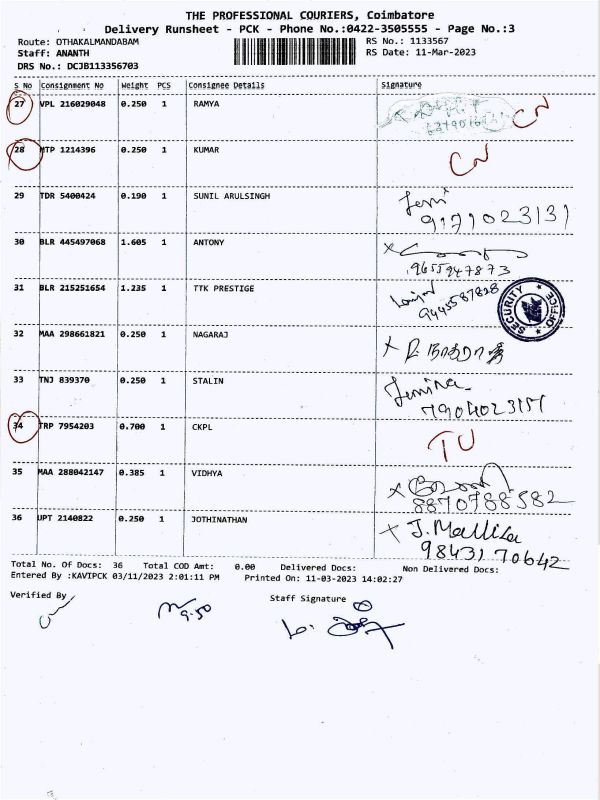 THE PROFESSIONAL COURIERS, Coimbatore
Delivery Runsheet - PCK - Phone No.:0422-3505555 - Page No.:3
Route: OTHAKALMANDABAM RS No.: 1133567
Staff: ANANTH RS Date: 11-Mar-2023
DRS No.: DCJB113356703
S No Consignment No Weight PCS Consignee Details Signature
27 VPL 216029048 0.250 1 RAMYA CN
28 MTP 1214396 0.250 1 KUMAR CN
29 TDR 5400424 0.190 1 SUNIL ARULSINGH
9171023131
30 BLR 445497068 1.605 1 ANTONY X
9655947873
31 BLR 215251654 1.235 1 TTK PRESTIGE
9445587828
SECURITY OFFICE
32 MAA 298661821 0.250 1 NAGARAJ X
33 TNJ 839370 0.250 1 STALIN
34 TRP 7954203 0.700 1 CKPL
35 MAA 288042147 0.385 1 VIDHYA X
8870788582
36 UPT 2140822 0.250 1 JOTHINATHAN X J. Mallika
9843170642
Total No. Of Docs: 36 Total COD Amt: 0.00 Delivered Docs: Non Delivered Docs:
Entered By :KAVIPCK 03/11/2023 2:01:11 PM Printed On: 11-03-2023 14:02:27
Verified By Staff Signature
9.50